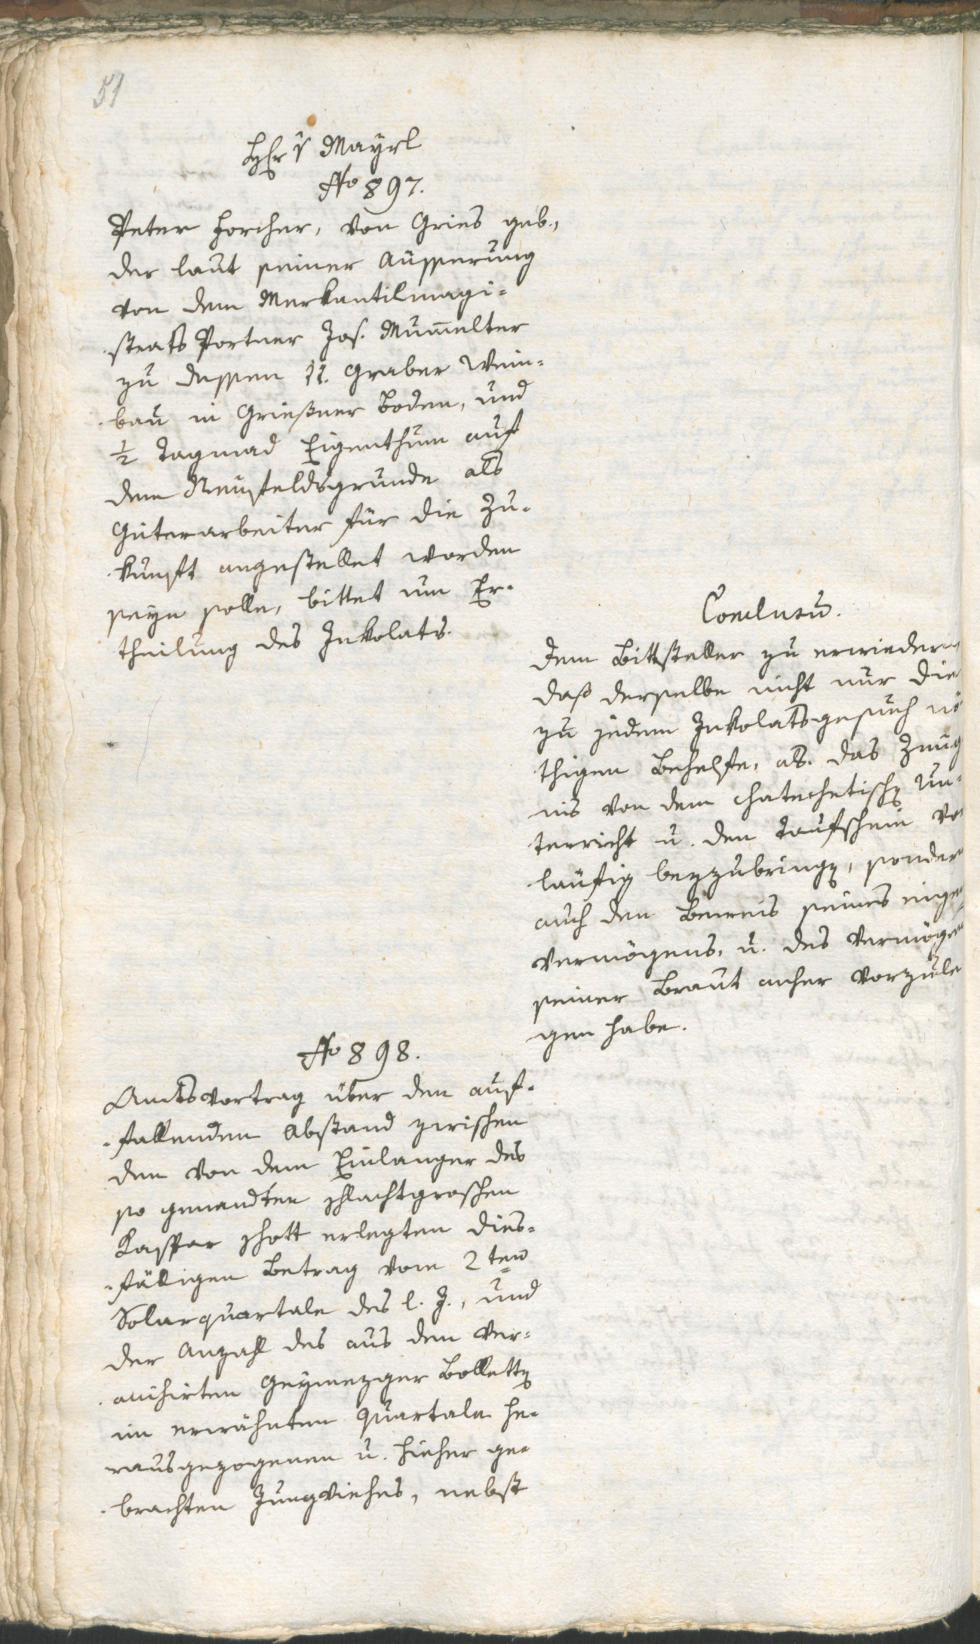 51
Mayrl
No 897.
Peter Horcher, von Gries geb.,
der laut seiner Äusserung
von dem Merkantilmagi-
strats Portner Jos. Mumelter
zu dessen 11. Graber Wein-
bau in Grießner Boden, und
1/2 Tagmad Eigenthum auf
dem Neufeldsgrunde als
Güterarbeiter für die Zu-
kunft angestellet worden
seyn solle, bittet um Er-
theilung des Inkolats.
Conclusum.
Dem Bittsteller zu erwiedern
daß derselbe nicht nur die
zu jedem Inkolatsgesuch nö
thigen Behelfe, als das Zeug
nis von dem chatechetischen Un-
terricht u. den Taufschein vor
läufig beyzubringen, sondern
auch den Beweis seines eigen
Vermögens, u. des Vermögen
seiner Braut anher vorzule
gen habe.
No 898.
Amtsvortrag über den auf-
fallenden Abstand zwischen
den von dem Einlanger des
so genandten Schlachtgroschen
Kaspar Schott erlegten dies-
fälligen Betrag vom 2ten
Solarquartale des l. J., und
der Anzahl des aus dem Ver-
anihirten Geymezger Bolletten
im erwähnten Quartale he-
rausgezogenen u. hieher ge-
brachten Jungviehes, nebst